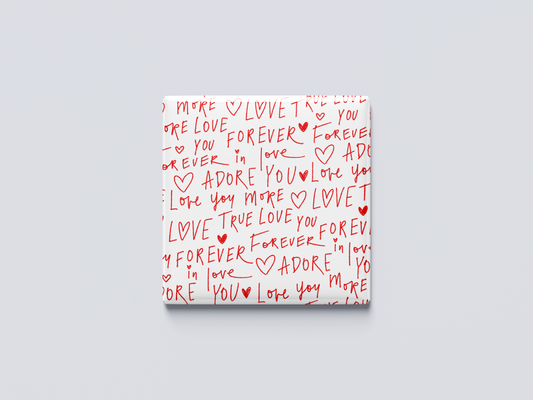 MORE LOVE TRUE LOVE
ORE LOVE YOU
YOU FOREVER FOREVER
FOREVER in love ADO
ADORE YOU Love you
Love you MORE LOVE T
LOVE TRUE LOVE YOU
FOREVER Forever FOREV
in love ADORE in love
DORE YOU Love you MORE YO
TRUE LOVE